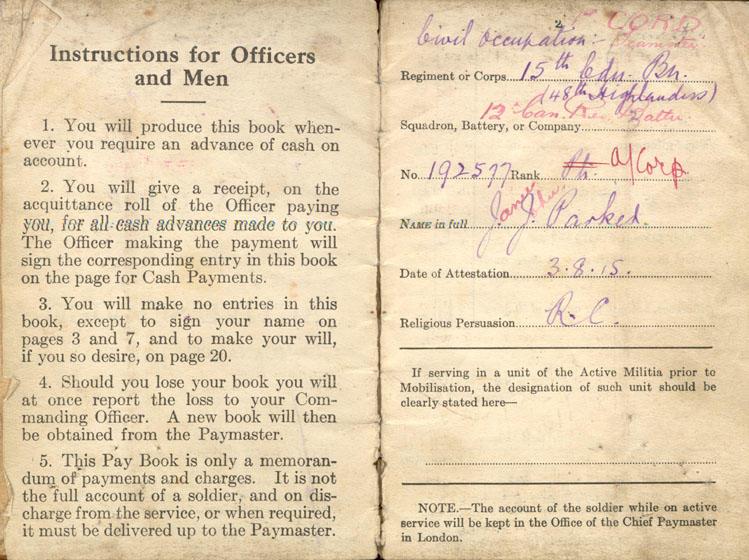 Instructions for Officers
and Men
1. You will produce this book when-
ever you require an advance of cash on
account.
2. You will give a receipt, on the
acquittance roll of the Officer paying
you, for all cash advances made to you.
The Officer making the payment will
sign the corresponding entry in this book
on the page for Cash Payments.
3. You will make no entries in this
book, except to sign your name on
pages 3 and 7, and to make your will,
if you so desire, on page 20.
4. Should you lose your book you will
at once report the loss to your Com-
manding Officer. A new book will then
be obtained from the Paymaster.
5. This Pay Book is only a memoran-
dum of payments and charges. It is not
the full account of a soldier, and on dis-
charge from the service, or when required,
it must be delivered up to the Paymaster.
2
CORD
Civil Occupation:- Teamster
Regiment or Corps 15th Cdn. Bn.
(48th Highlanders)
12 Can. Res. Battn.
Squadron, Battery, or Company
No. 192577 Rank Pte. A/Corp
NAME in full J. Parker.
Date of Attestation 3.8.15.
Religious Persuasion R.C.
If serving in a unit of the Active Militia prior to
Mobilisation, the designation of such unit should be
clearly stated here—
NOTE.—The account of the soldier while on active
service will be kept in the Office of the Chief Paymaster
in London.